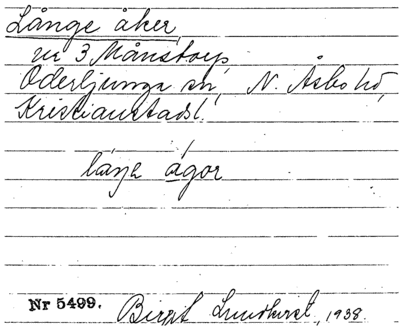 Långe åker
nr 3 Månstorp,
Oderljunga sn, N. Åsbo hd,
Kristianstadsl.
ågor
Nr 5499. Birgit Lundkvist, 1938.